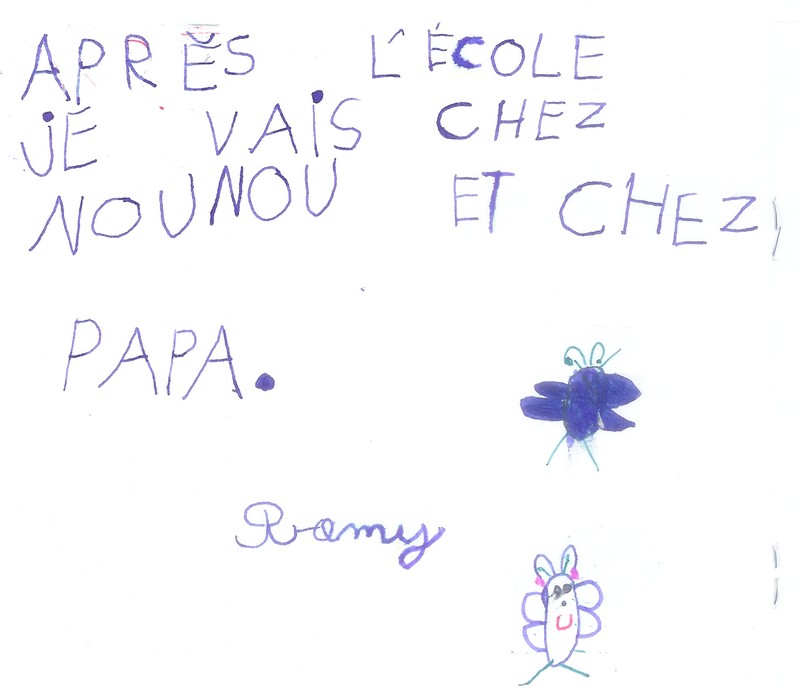 APRÈS L'ÉCOLE
JE VAIS CHEZ
NOUNOU ET CHEZ
PAPA.
Ramy